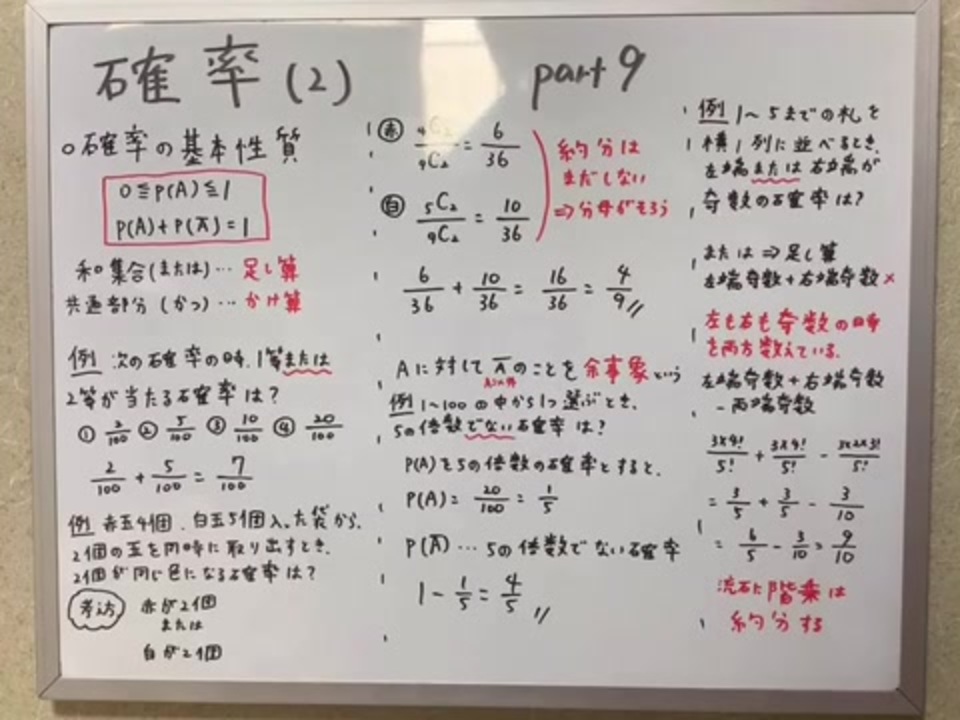 確率(2) part 9
○確率の基本性質
0≦P(A)≦1
P(A)+P(A̅)=1
和集合(または)… 足し算
共通部分(かつ)… かけ算
例 次の確率の時、1等または
2等が当たる確率は？
① 2/100 ② 5/100 ③ 10/100 ④ 20/100
2/100 + 5/100 = 7/100
例 赤玉4個、白玉5個入った袋から、
2個の玉を同時に取り出すとき、
2個が同じ色になる確率は？
考え方 赤が2個
または
白が2個
赤 ₄C₂/₉C₂ = 6/36
白 ₅C₂/₉C₂ = 10/36
約分は
まだしない
⇒分母がそろう
6/36 + 10/36 = 16/36 = 4/9
Aに対してA̅のことを余事象という
A以外
例 1〜100の中から1つ選ぶとき、
5の倍数でない確率は？
P(A)を5の倍数の確率とすると、
P(A) = 20/100 = 1/5
P(A̅)… 5の倍数でない確率
1 - 1/5 = 4/5
例 1〜5までの札を
横1列に並べるとき、
左端または右端が
奇数の確率は？
または⇒足し算
左端奇数+右端奇数×
左も右も奇数の時
を両方数えている。
左端奇数+右端奇数
-両端奇数
3×4!/5! + 3×4!/5! - 3×2×3!/5!
= 3/5 + 3/5 - 3/10
= 6/5 - 3/10 = 9/10
流石に階乗は
約分する